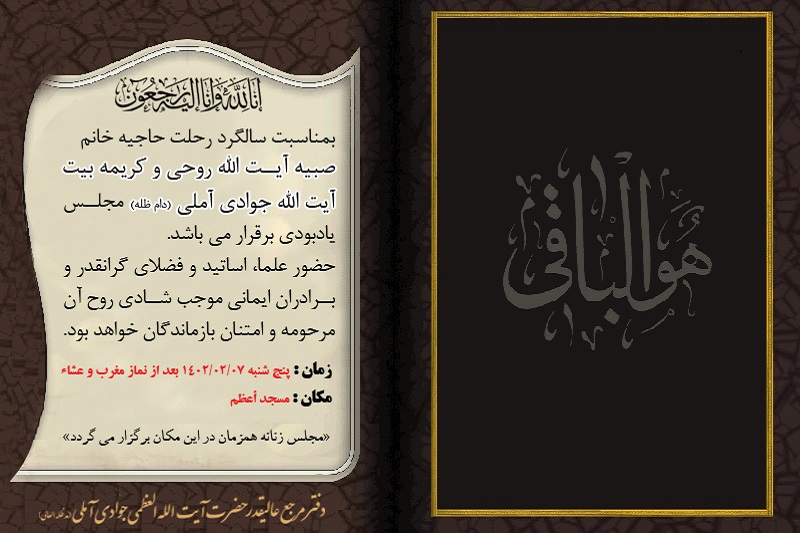 هو الباقی
انا لله وانا الیه راجعون
بمناسبت سالگرد رحلت حاجیه خانم
صبیه آیت الله روحی و کریمه بیت
آیت الله جوادی آملی (دام ظله) مجلس
یادبودی برقرار می باشد.
حضور علماء، اساتید و فضلای گرانقدر و
برادران ایمانی موجب شادی روح آن
مرحومه و امتنان بازماندگان خواهد بود.
زمان : پنج شنبه ۱۴۰۲/۰۲/۰۷ بعد از نماز مغرب و عشاء
مکان : مسجد أعظم
«مجلس زنانه همزمان در این مکان برگزار می گردد»
دفتر مرجع عالیقدر حضرت آیت الله العظمی جوادی آملی (مد ظله العالی)